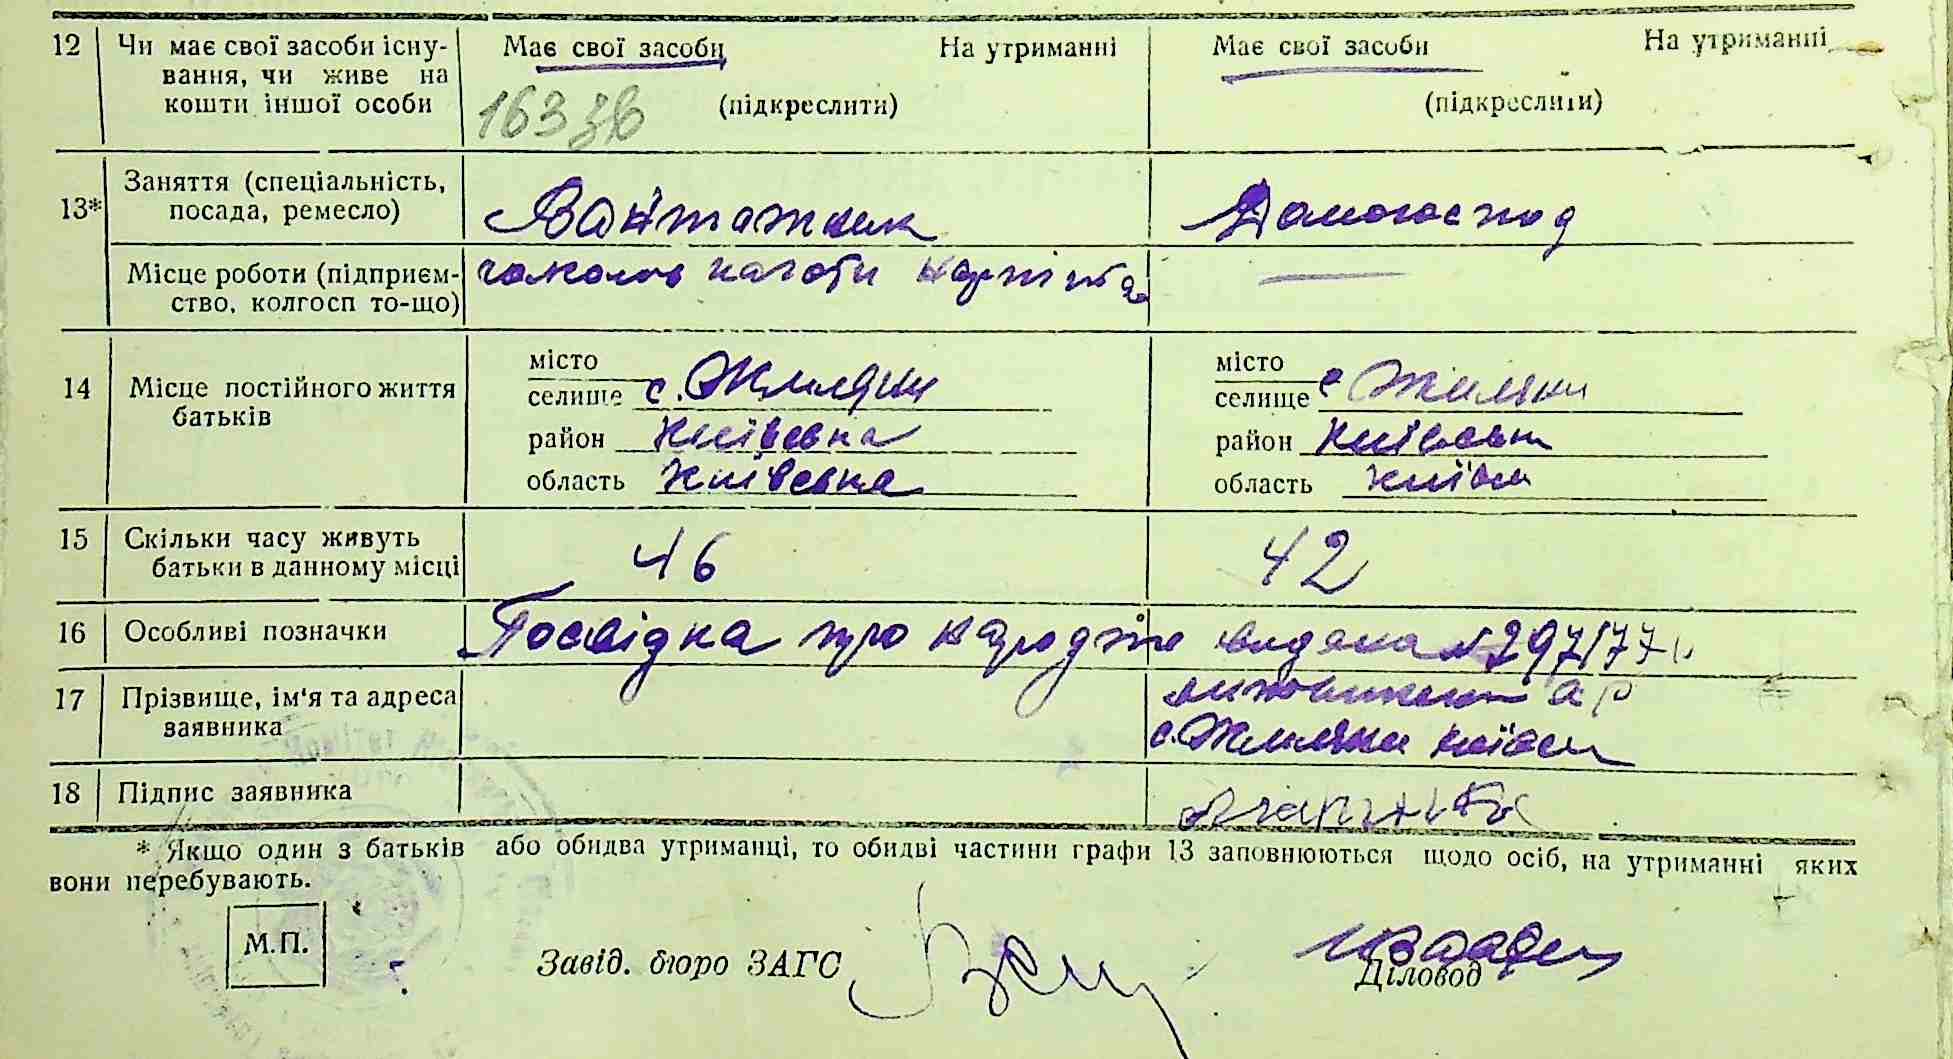 12 Чи має свої засоби існу- Має свої засоби На утриманні Має свої засоби На утриманні
вання, чи живе на
кошти іншої особи 163 зв (підкреслити) (підкреслити)
13* Заняття (спеціальність,
посада, ремесло) Вантажник Домогоспод
Місце роботи (підприєм-
ство, колгосп то-що)
14 Місце постійного життя
батьків
місто місто
селище с. Жиляни селище с Жиляни
район Київська район Київськ
область Київська область Київськ
15 Скільки часу живуть
батьки в данному місці 46 42
16 Особливі позначки Посвідка про народже видана № 297/77
17 Прізвище, ім'я та адреса
заявника с. Жиляни Київськ
18 Підпис заявника
* Якщо один з батьків або обидва утриманці, то обидві частини графи 13 заповнюються щодо осіб, на утриманні яких
вони перебувають.
М.П.
Завід. бюро ЗАГС Діловод